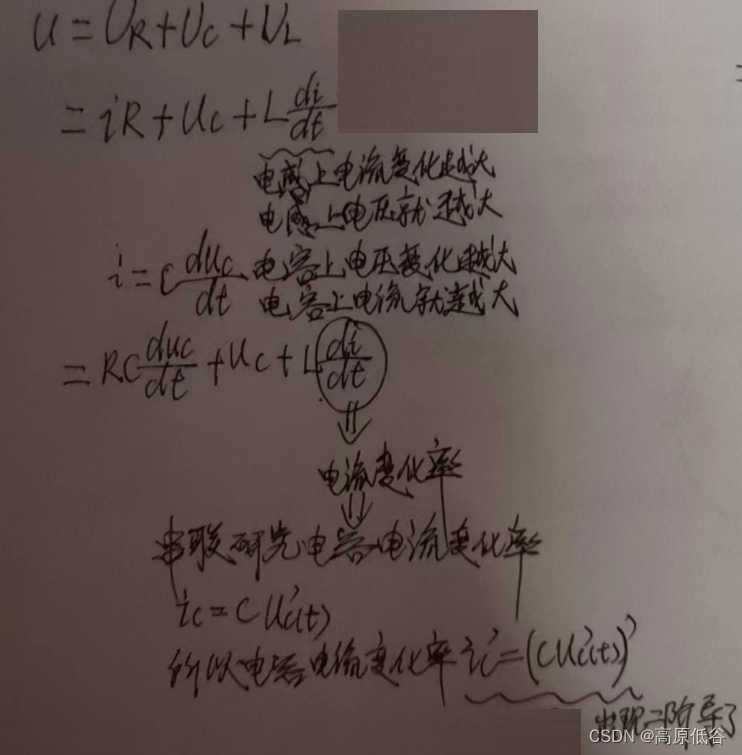 u=UR+Uc+UL
=iR+Uc+L di/dt
电感上电流变化越大
电感上电压就越大
i=C duc/dt 电容上电压变化越大
电容上电流就越大
=RC duc/dt +Uc+L di/dt
⇓
电流变化率
⇓
串联研究电容电流变化率
ic=CUc'(t)
所以电容电流变化率 ic'=(CUc'(t))'
出现二阶导了
CSDN @高原低谷